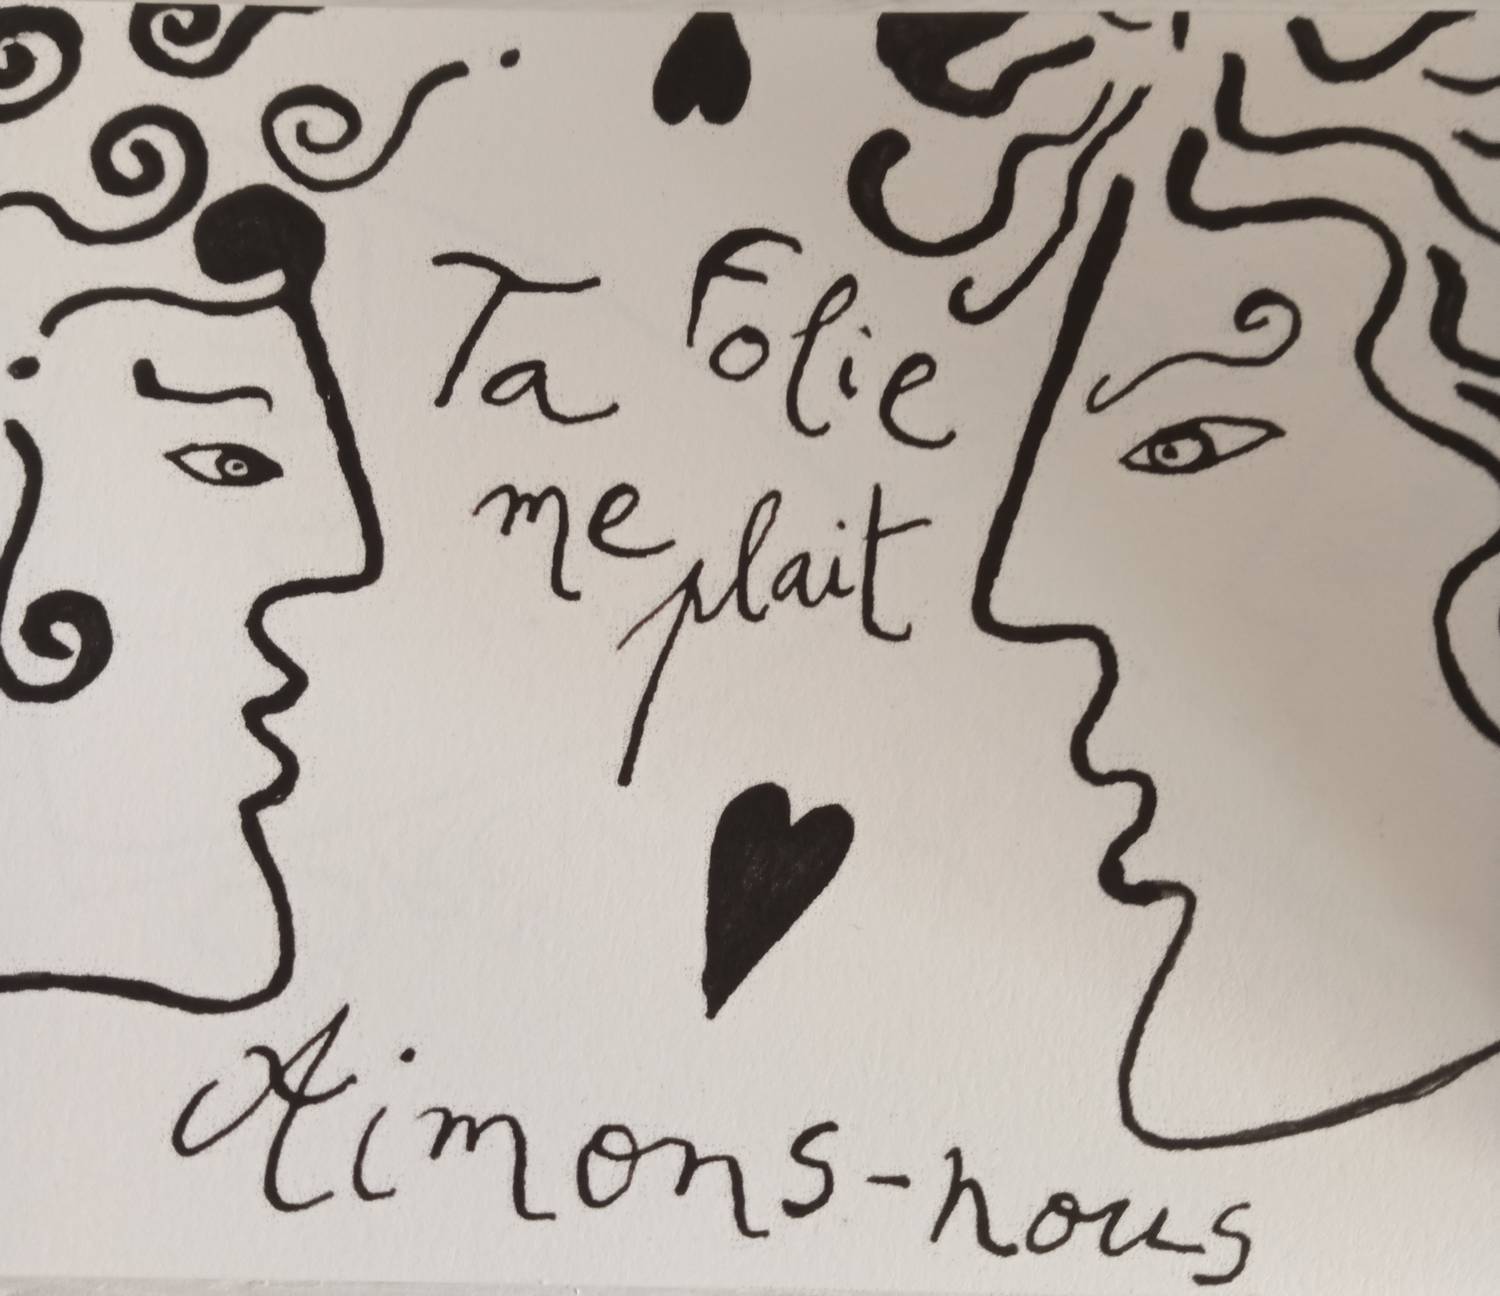 Ta Folie
me plait
Aimons-nous